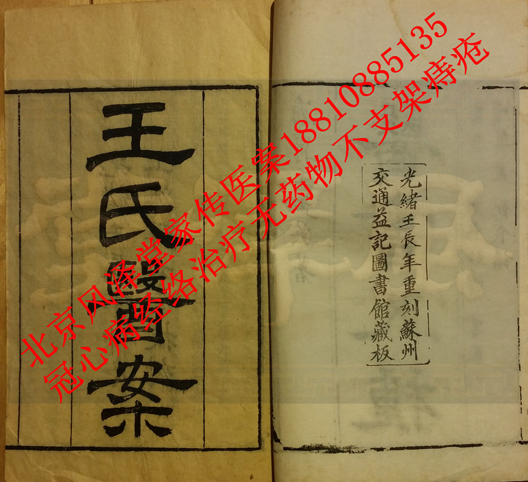 王氏醫案
光緒壬辰年重刻蘇州
交通益記圖書館藏板
北京风泽堂家传医案18810885135
冠心病经络治疗无药物不支架痔疮